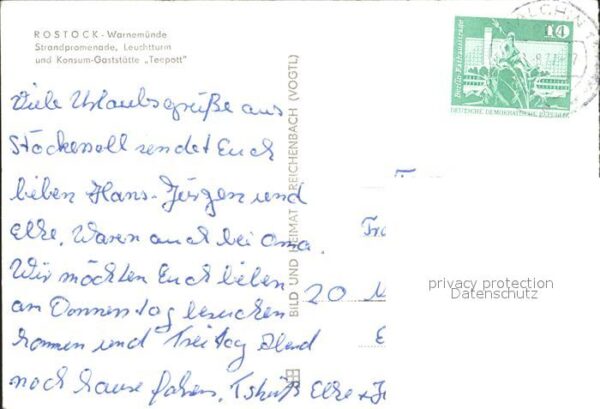 ROSTOCK - Warnemünde
Strandpromenade, Leuchtturm
und Konsum-Gaststätte „Teepott"
Viele Urlaubsgrüße aus
sendet Euch
lieben Hans-Jürgen und
Elke. Waren auch bei Oma.
Wir möchten Euch lieben
am Donnerstag besuchen
kommen und Freitag Abend
nach hause fahren. Tshüß Elke +
BILD UND HEIMAT REICHENBACH (VOGTL)
14
Berlin, Rathausstraße
DEUTSCHE DEMOKRATISCHE REPUBLIK
ALCHIN
20
privacy protection
Datenschutz